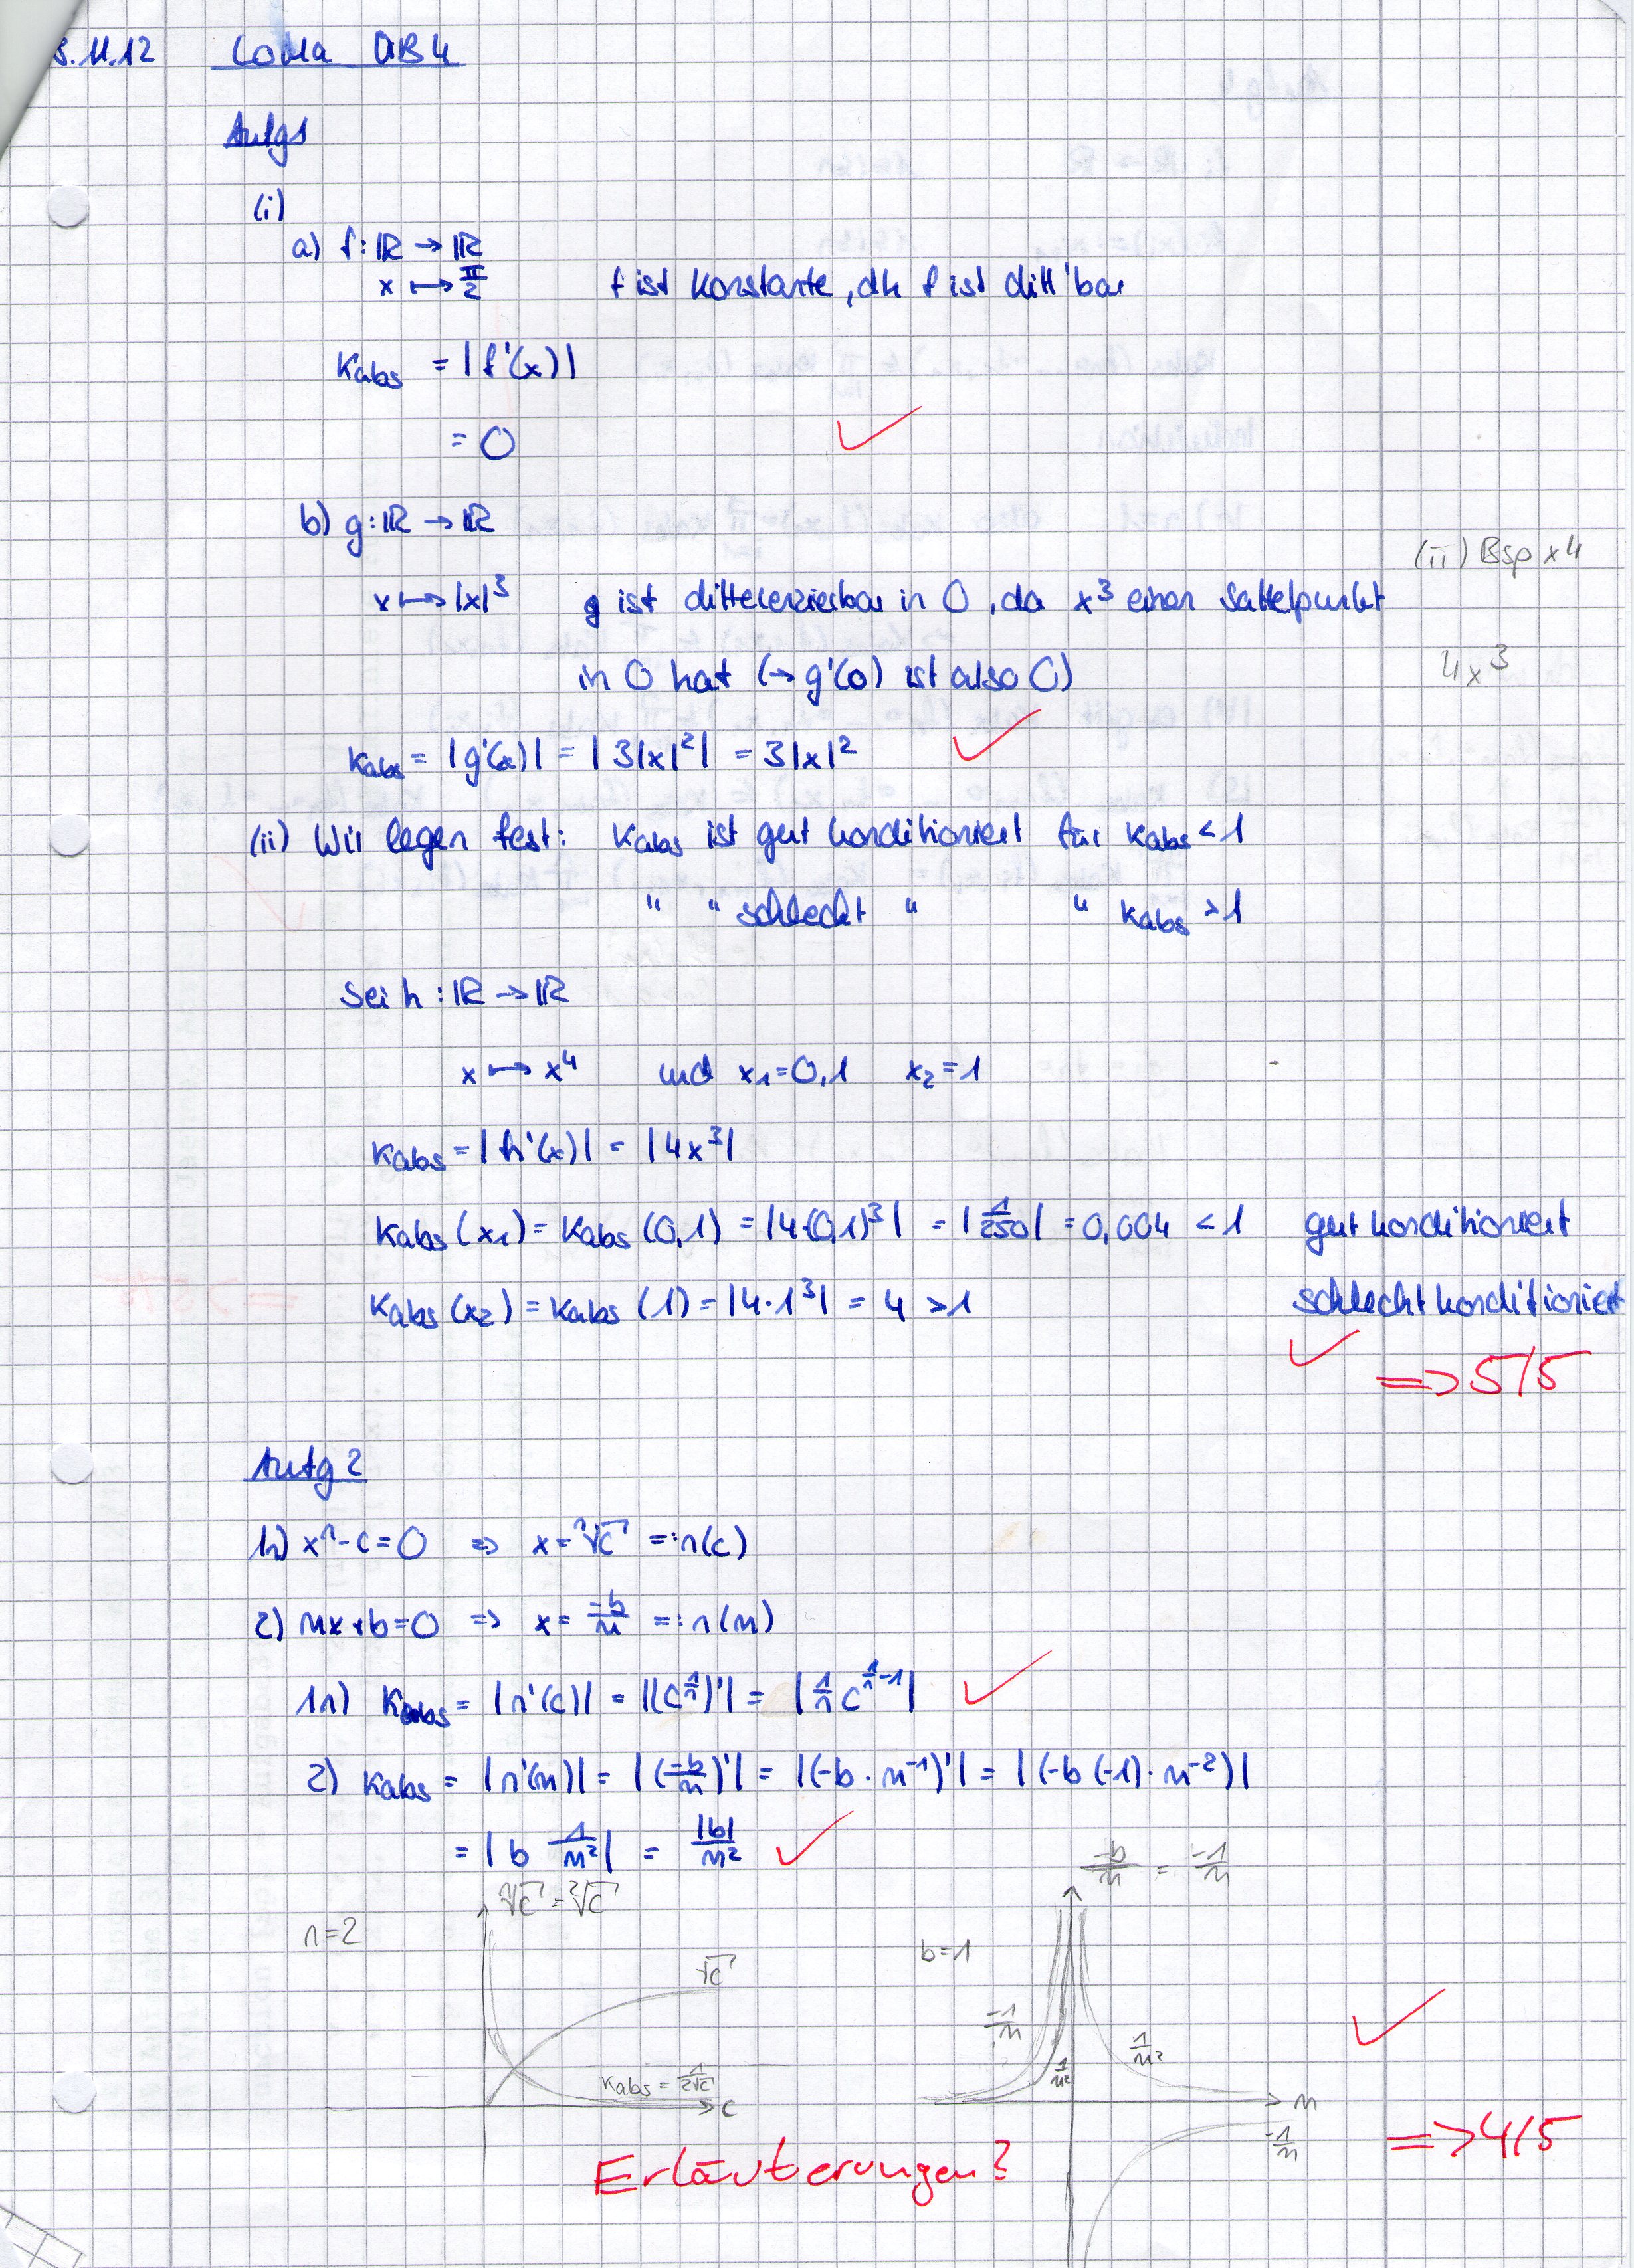 8.11.12 CoMa ÜB4
Aufg1
(i)
a) f: ℝ → ℝ
x ↦ π/2 f ist konstante, dh f ist diff'bar
Kabs = |f'(x)|
= 0
b) g: ℝ → ℝ
(ii) Bsp x4
x ↦ |x|³ g ist differenzierbar in 0, da x³ einen Sattelpunkt
4x³
in 0 hat (→ g'(0) ist also 0)
Kabs = |g'(x)| = |3|x|²| = 3|x|²
(ii) Wir legen fest: Kabs ist gut konditioniert für Kabs < 1
" " schlecht " " Kabs > 1
Sei h: ℝ → ℝ
x ↦ x⁴ und x₁=0,1 x₂=1
Kabs = |h'(x)| = |4x³|
Kabs (x₁) = Kabs (0,1) = |4·(0,1)³| = |1/250| = 0,004 < 1 gut konditioniert
Kabs (x₂) = Kabs (1) = |4·1³| = 4 > 1 schlecht konditioniert
=> 5/5
Aufg 2
1n) xⁿ - c = 0 ⇒ x = ⁿ√c =: n(c)
2) mx + b = 0 ⇒ x = -b/m =: n(m)
1n) Kabs = |n'(c)| = |(c^(1/n))'| = |1/n c^(1/n -1)|
2) Kabs = |n'(m)| = |(-b/m)'| = |(-b · m⁻¹)'| = |(-b (-1) · m⁻²)|
= |b 1/m²| = |b|/m²
ⁿ√c = ²√c -b/m = -1/m
n=2 b=1
√c
-1/m 1/m² 1/m²
Kabs = 1/(2√c)
c m
-1/m
=> 4/5
Erläuterungen?